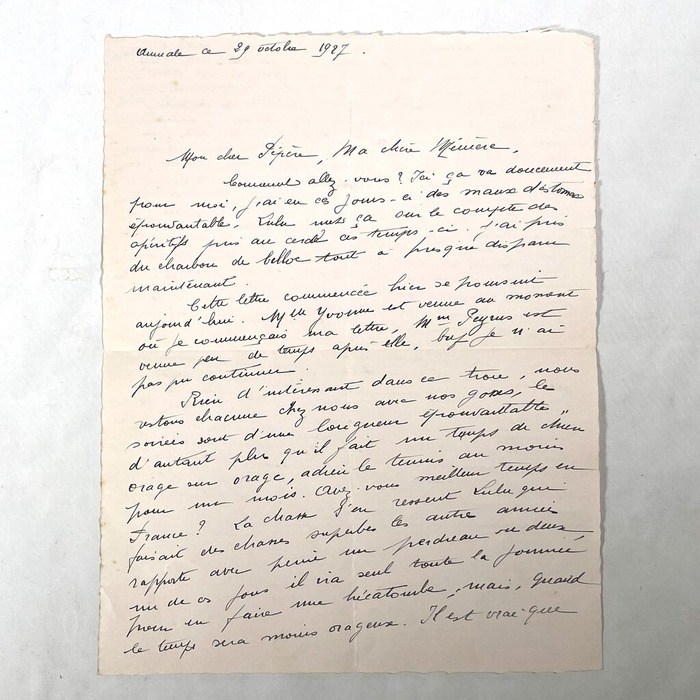 Aumale ce 29 octobre 1927.
Mon cher Pépère, Ma chère Mémère,
Comment allez-vous? Ici ça va doucement
pour moi, j'ai eu ces jours-ci des maux d'estomac
épouvantable, Lulu met ça sur le compte des
apéritifs pris au cercle ces temps-ci. J'ai pris
du charbon de belloc tout a presque disparu
maintenant.
Cette lettre commencée hier se poursuit
aujourd'hui. Mlle Yvonne est venue au moment
où je commençais ma lettre, Mme Peyrus est
venue peu de temps après elle, bref je n'ai
pas pu continuer.
Rien d'intéressant dans ce trou, nous
restons chacune chez nous avec nos gosses, les
soirées sont d'une longueur épouvantable
d'autant plus qu'il fait un temps de chien
orage sur orage, adieu le tennis au moins
pour un mois. Avez-vous meilleur temps en
France? La chasse s'en ressent Lulu qui
faisait des chasses superbes les autre années
rapporte avec peine un perdreau ou deux,
un de ces jours il ira seul toute la journée
pour en faire une hécatombe, mais, quand
le temps sera moins orageux. Il est vrai que